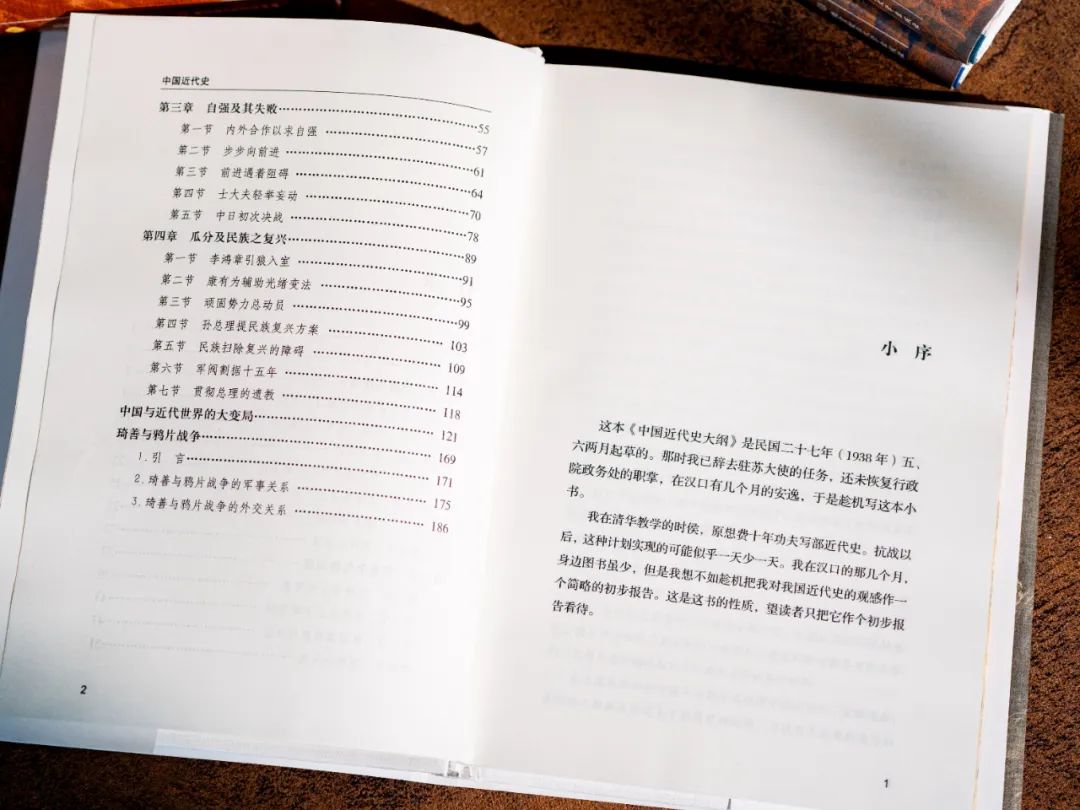 中国近代史
第三章 自强及其失败 55
第一节 内外合作以求自强 57
第二节 步步向前进 61
第三节 前进遇着阻碍 64
第四节 士大夫轻举妄动 70
第五节 中日初次决战 78
第四章 瓜分及民族之复兴 89
第一节 李鸿章引狼入室 91
第二节 康有为辅助光绪变法 95
第三节 顽固势力总动员 99
第四节 孙总理提民族复兴方案 103
第五节 民族扫除复兴的障碍 109
第六节 军阀割据十五年 114
第七节 贯彻总理的遗教 118
中国与近代世界的大变局 121
琦善与鸦片战争 169
1. 引 言 171
2. 琦善与鸦片战争的军事关系 175
3. 琦善与鸦片战争的外交关系 186
2
小 序
这本《中国近代史大纲》是民国二十七年（1938 年）五、
六两月起草的。那时我已辞去驻苏大使的任务，还未恢复行政
院政务处的职掌，在汉口有几个月的安逸，于是趁机写这本小
书。
我在清华教学的时侯，原想费十年功夫写部近代史。抗战以
后，这种计划实现的可能似乎一天少一天。我在汉口的那几个月，
身边图书虽少，但是我想不如趁机把我对我国近代史的观感作一
个简略的初步报告。这是这书的性质，望读者只把它作个初步报
告看待。
1